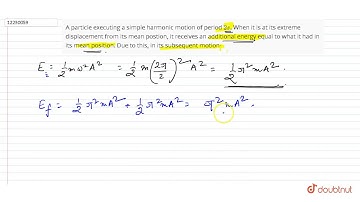 12230059
A particle executing a simple harmonic motion of period 2s. When it is at its extreme
displacement from its mean postion, it receives an additional energy equal to what it had in
its mean position. Due to this, in its subsequent motion.
E = 1/2 mω²A² = 1/2 m(2π/2)²A² = 1/2 π²mA²
E_f = 1/2 π²mA² + 1/2 π²mA² = π²mA².
doubtnut